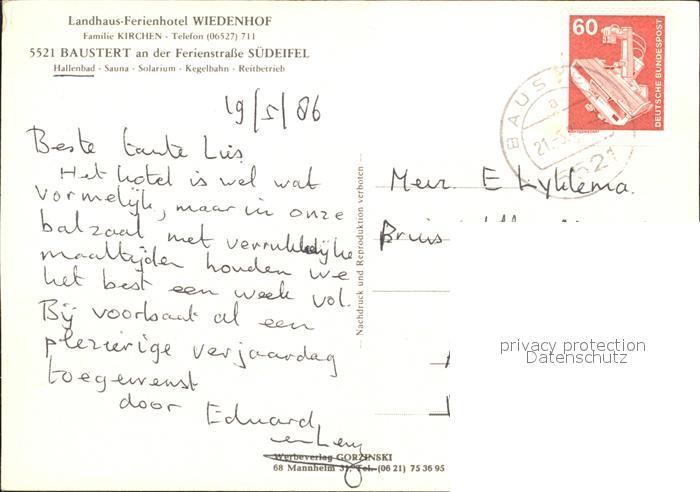 Landhaus-Ferienhotel WIEDENHOF
Familie KIRCHEN - Telefon (06527) 711
5521 BAUSTERT an der Ferienstraße SÜDEIFEL
Hallenbad - Sauna - Solarium - Kegelbahn - Reitbetrieb
19/5/86
Beste tante Lies
Het hotel is wel wat
vormelijk, maar in onze
balzaal met verrukkelijke
maaltijden houden we
het best een week vol.
Bij voorbaat al een
plezierige verjaardag
toegewenst
door Eduard
en
Werbeverlag GORZINSKI
68 Mannheim 31, Tel. (06 21) 75 36 95
— Nachdruck und Reproduktion verboten —
60
DEUTSCHE BUNDESPOST
BAUS
a
21.-5.
5521
Mevr. E Lyklema.
privacy protection
Datenschutz